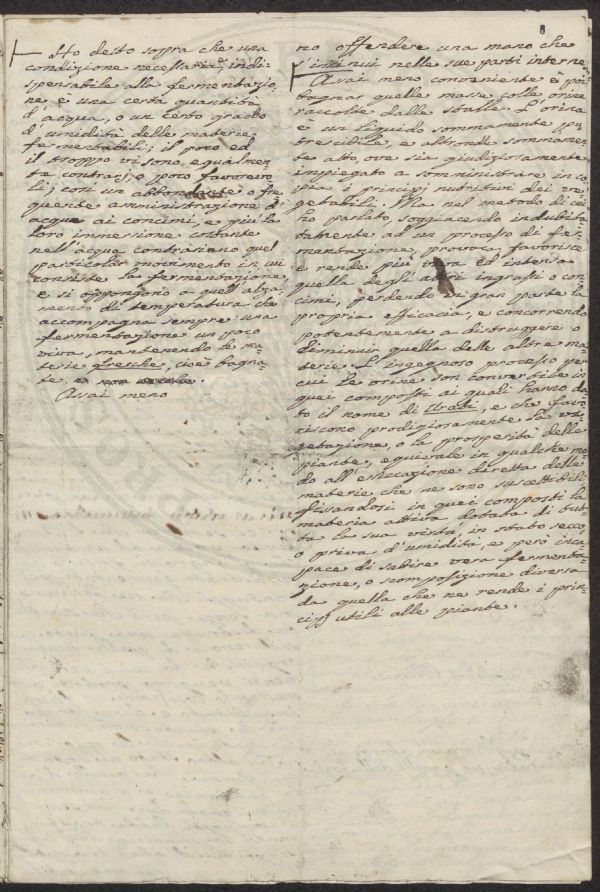 Ho detto sopra che una
condizione necessaria, indi-
spensabile alla fermentazio
ne, e una certa quantità
d'acqua, o un certo grado
d'umidità delle materie
fermentabili; il poco ed
il troppo vi sono, egualmen
te contrarj, o poco favorevo
li; così un abbondante o fre
quente amministrazione di
acqua ai concimi, e più la
loro immersione costante
nell'acqua contrariano quel
particolar movimento in cui
consiste la fermentazione,
e si oppongono a quell'alza
mento di temperatura che
accompagna sempre una
fermentazione un poco
viva, mantenendo le ma-
terie fresche, cioè bagna-
te.
Assai meno
8
no offendere una mano che
s'intinui nelle sue parti interne.
Assai meno conveniente è poi
bagnar quelle masse colle orine
raccolte dalle stalle. L'orina
è un liquido sommamente pu
trescibile, e altronde sommamen
te atto, ove sia giudiziosamente
impiegato a somministrare in co
pia i principj nutritivi dei ve
getabili. Ma nel metodo di cui
ho parlato soggiacendo indubita
tamente ad un processo di fer
mentazione, provoca, favorisce
e rende più viva ed intensa
quella degli altri ingrassi o con
cimi, perdendo in gran parte la
propria efficacia, e concorrendo
potentemente a distruggere o
diminuir quella delle altre ma-
terie. L'ingegnoso processo per
cui le orine son convertite in
quei composti ai quali hanno da
to il nome di Urati, e che favo
riscono prodigiosamente la ve
getazione, o la prosperità delle
piante, equivale in qualche mo-
do all'essiccazione diretta delle
materie che ne sono suscettibili
fissandosi in quei composti la
materia attiva dotata di tut
ta la sua virtù, in stato secco,
o priva d'umidità, e però inca
pace di subire vera fermenta-
zione, o scomposizione diversa
da quella che ne rende i prin-
cipj utili alle piante.